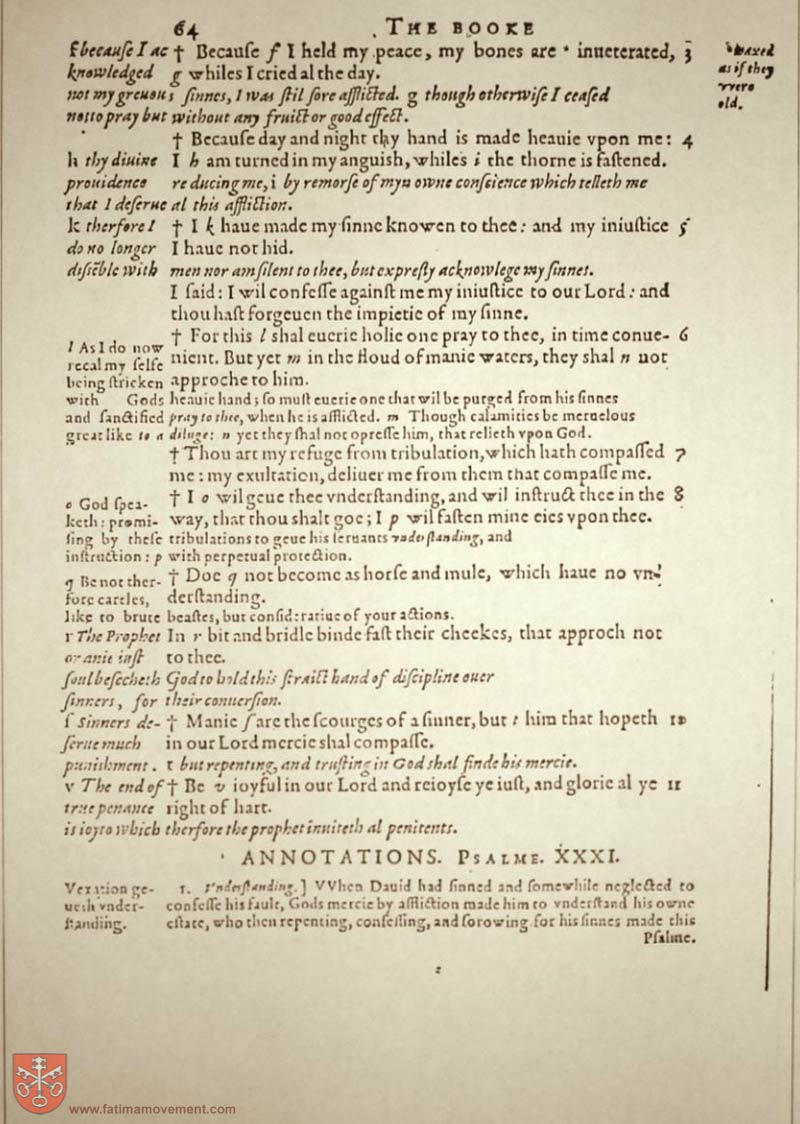 64 THE BOOKE
f because I ac † Becauſe f I held my peace, my bones are * inueterated, 3
knowledged g whiles I cried al the day.
not my greuous ſinnes, I was ſtil ſore afflicted. g though otherwiſe I ceaſed
not to pray but without any fruict or good effect.
* waxed
as if they
vvere
old.
† Becauſe day and night thy hand is made heauie vpon me: 4
h thy diuine I h am turned in my anguish, whiles i the thorne is faſtened.
prouidence reducing me, i by remorſe of myn owne conſcience which telleth me
that I deſerue al this affliction.
k therfore I † I k haue made my ſinne knowen to thee: and my iniuſtice 5
do no longer I haue not hid.
diſſēble with men nor am ſilent to thee, but expreſly acknowlege my ſinnes.
I ſaid: I wil confeſſe againſt me my iniuſtice to our Lord: and
thou haſt forgeuen the impietie of my ſinne.
† For this l shal euerie holie one pray to thee, in time conue- 6
l As I do now
nient. But yet m in the floud of manie waters, they shal n not
recal my ſelfe
being ſtricken approche to him.
with Gods heauie hand; ſo muſt euerie one that wil be purged from his ſinnes
and ſanctified pray to thee, when he is afflicted. m Though calamities be meruelous
great like to a diluge: n yet they ſhal not opreſſe him, that relieth vpon God.
† Thou art my refuge from tribulation, which hath compaſſed 7
me: my exultation, deliuer me from them that compaſſe me.
† I o wil geue thee vnderſtanding, and wil inſtruct thee in the 8
o God ſpea-
keth: promi- way, that thou shalt goe; I p wil faſten mine eies vpon thee.
ſing by theſe tribulations to geue his ſeruants vnderſtanding, and
inſtruction: p with perpetual protection.
q Be not ther- † Doe q not become as horſe and mule, which haue no vn-
fore careles, derſtanding.
like to brute beaſtes, but conſideratiue of your actions.
r The Prophet In r bit and bridle binde faſt their cheekes, that approch not
or anie iuſt to thee.
ſoul beſecheth God to hold this ſtraict hand of diſcipline ouer
ſinners, for their conuerſion.
ſ Sinners de- † Manie ſ are the ſcourges of a ſinner, but t him that hopeth 10
ſerue much in our Lord mercie shal compaſſe.
punishment. t but repenting, and truſting in God shal finde his mercie.
v The end of † Be v ioyful in our Lord and reioyſe ye iuſt, and glorie al ye 11
true penance right of hart.
is ioy to which therfore the prophet inuiteth al penitents.
ANNOTATIONS. PSALME. XXXI.
Vexation ge- 1. Vnderſtanding.] VVhen Dauid had ſinned and ſomewhile neglected to
ueth vnder- confeſſe his fault, Gods mercie by affliction made him to vnderſtand his owne
ſtanding. eſtate, who then repenting, confeſſing, and ſorowing for his ſinnes made this
Pſalme.
www.fatimamovement.com